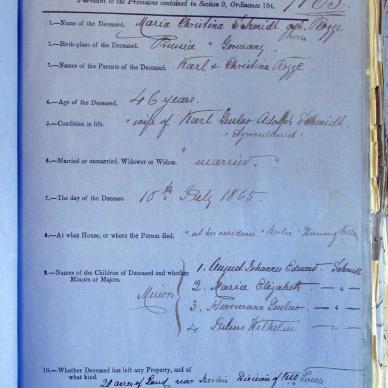 Pursuant to the Provisions contained in Section 9, Ordinance 104.
1.—Name of the Deceased. Maria Christina Schmidt born Rogge
2.—Birth-place of the Deceased. Prussia Germany
3.—Names of the Parents of the Deceased. Karl & Christina Rogge
4.—Age of the Deceased. 46 years.
5.—Condition in life. "wife of Karl Gustav Adolph Schmidt
"Agriculturist"
6.—Married or unmarried, Widower or Widow. "married"
7.—The day of the Decease. 10th July 1865.
8.—At what House, or where the Person died. "at her residence" Berlin Division
9.—Names of the Children of Deceased and whether Minors or Majors.
Minors
1. August Johannes Eduard Schmidt
2. Maria Elizabeth — " —
3. Herrmann Gustav — " —
4 Julius Wilhelm — " —
10.—Whether Deceased has left any Property, and of what kind.
20 acres of Land near Berlin Division of